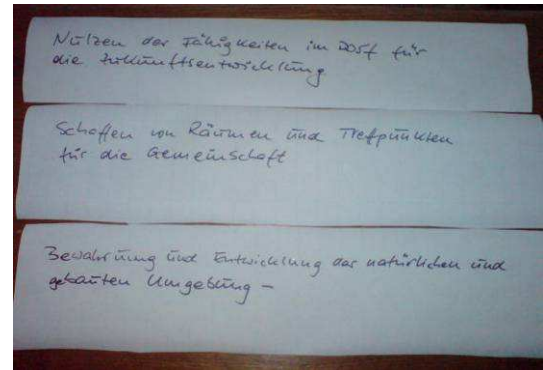 Nützen der Fähigkeiten im Dorf für
die Zukunftsentwicklung
Schaffen von Räumen und Treffpunkten
für die Gemeinschaft
Bewahrung und Entwicklung der natürlichen und
gebauten Umgebung –